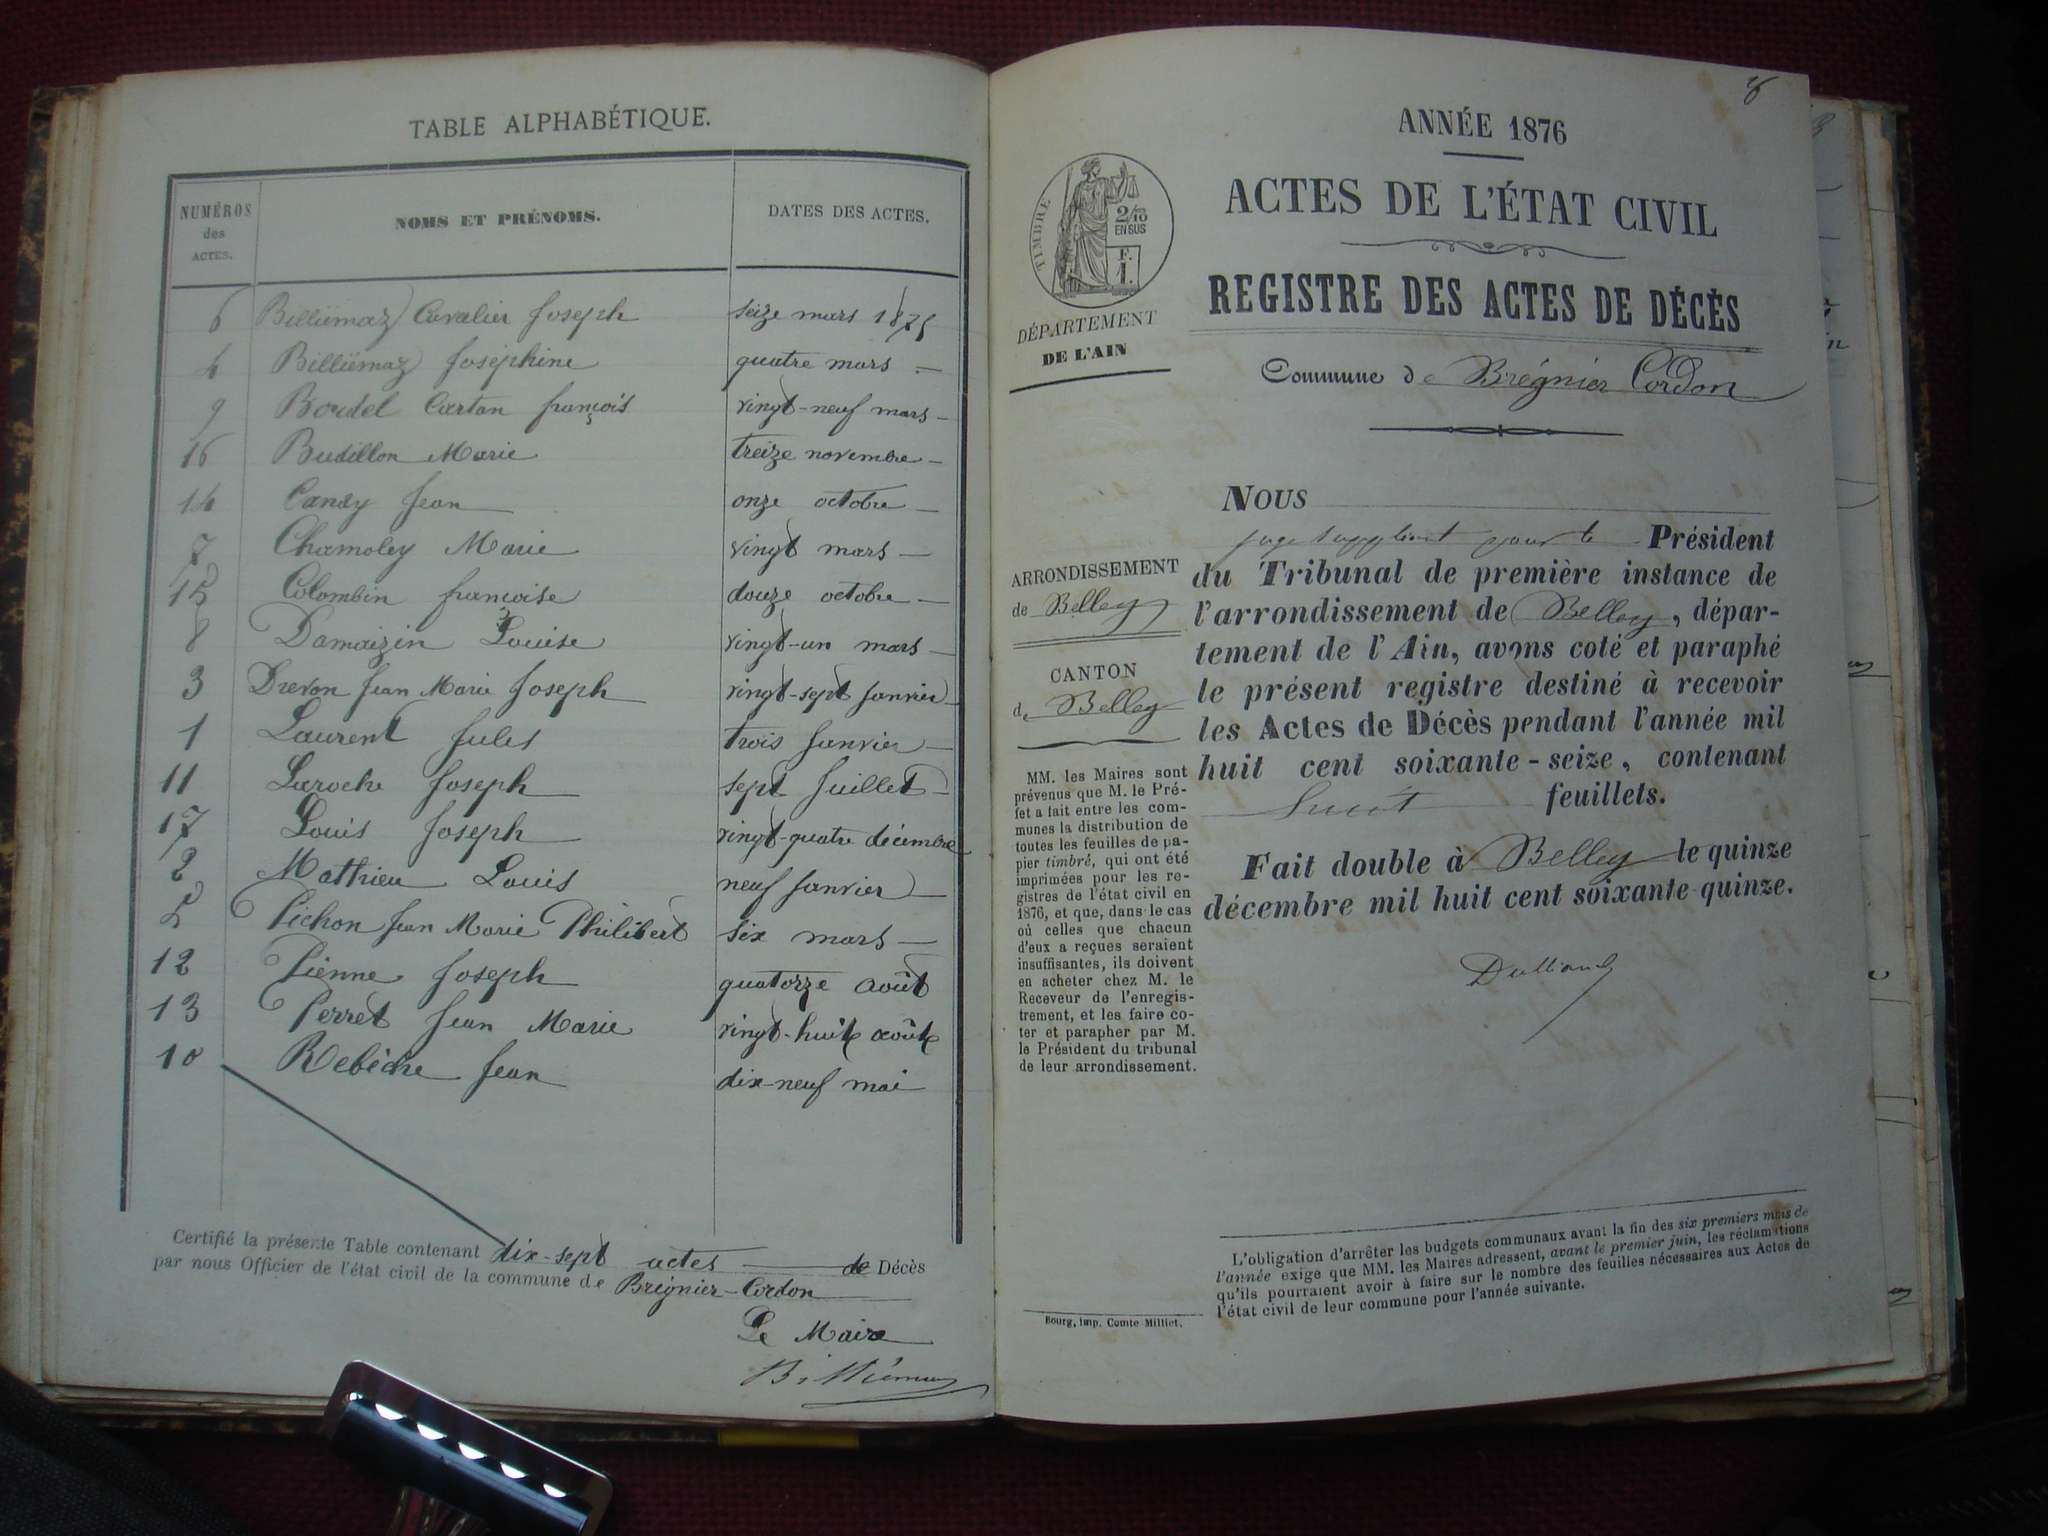 TABLE ALPHABÉTIQUE.
NUMÉROS des ACTES. NOMS ET PRÉNOMS. DATES DES ACTES.
6 Billiémaz Cavalier Joseph seize mars 1875
4 Billiémaz Joséphine quatre mars —
9 Boudel Cartan françois vingt-neuf mars —
16 Budillon Marie treize novembre —
14 Canay Jean onze octobre —
7 Chamoley Marie vingt mars —
15 Colombin francoise douze octobre —
8 Damaizin Louise vingt-un mars —
3 Drevon Jean Marie Joseph vingt-sept Janvier
1 Laurent Jules trois Janvier —
11 Laroche Joseph sept Juillet —
17 Louis Joseph vingt-quatre décembre
2 Mathieu Louis neuf Janvier —
5 Pichon Jean Marie Philibert six mars —
12 Pienne Joseph quatorze août
13 Perret Jean Marie vingt-huit août
10 Rebèche Jean dix-neuf mai
Certifié la présente Table contenant dix-sept actes de Décès
par nous Officier de l'état civil de la commune de Brégnier-Cordon
Le Maire
Billiémaz
8
ANNÉE 1876
ACTES DE L'ÉTAT CIVIL
REGISTRE DES ACTES DE DÉCÈS
Commune de Brégnier Cordon
TIMBRE
2/10
EN SUS
F.
1.
DÉPARTEMENT
DE L'AIN
ARRONDISSEMENT
de Belley
CANTON
de Belley
MM. les Maires sont
prévenus que M. le Pré-
fet a fait entre les com-
munes la distribution de
toutes les feuilles de pa-
pier timbré, qui ont été
imprimées pour les re-
gistres de l'état civil en
1876, et que, dans le cas
où celles que chacun
d'eux a reçues seraient
insuffisantes, ils doivent
en acheter chez M. le
Receveur de l'enregis-
trement, et les faire co-
ter et parapher par M.
le Président du tribunal
de leur arrondissement.
NOUS
juge suppléant pour le Président
du Tribunal de première instance de
l'arrondissement de Belley, dépar-
tement de l'Ain, avons coté et paraphé
le présent registre destiné à recevoir
les Actes de Décès pendant l'année mil
huit cent soixante-seize, contenant
huit feuillets.
Fait double à Belley le quinze
décembre mil huit cent soixante-quinze.
L'obligation d'arrêter les budgets communaux avant la fin des six premiers mois de
l'année exige que MM. les Maires adressent, avant le premier juin, les réclamations
qu'ils pourraient avoir à faire sur le nombre des feuilles nécessaires aux Actes de
l'état civil de leur commune pour l'année suivante.
Bourg, imp. Comte Milliet.